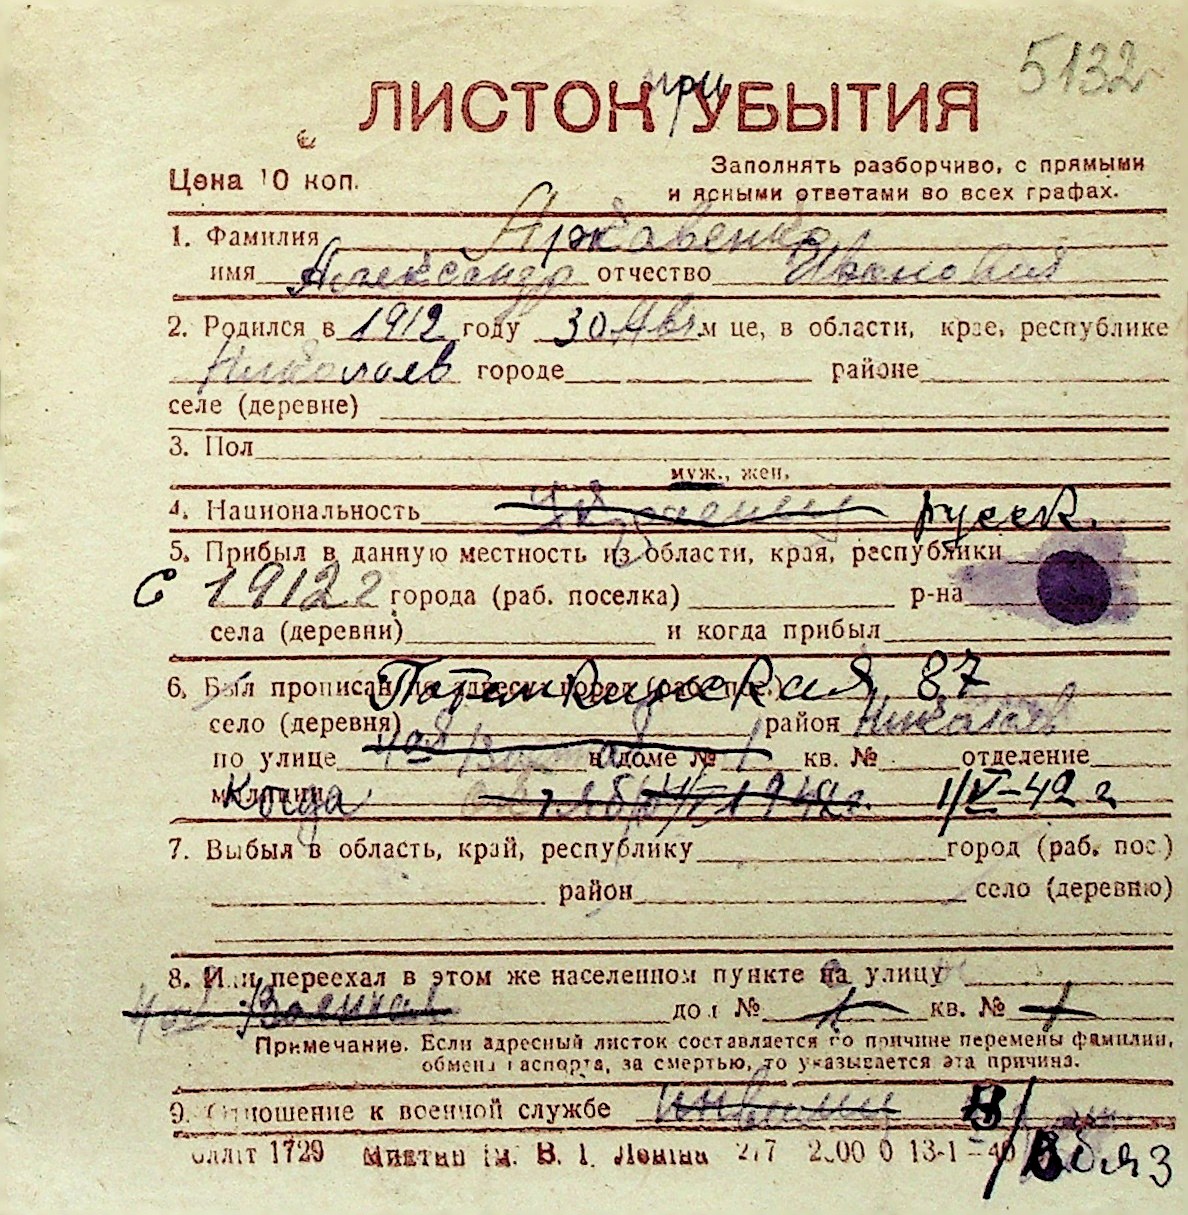 5132
ЛИСТОК при УБЫТИЯ
Цена 10 коп.
Заполнять разборчиво, с прямыми
и ясными ответами во всех графах.
1. Фамилия Аркавенко
имя Александр отчество Иванович
2. Родился в 1912 году 30 Авг. м це, в области, крае, республике
Николаев городе районе
селе (деревне)
3. Пол
муж., жен.
4. Национальность Украинец русск.
5. Прибыл в данную местность из области, края, республики
С 1912 г города (раб. поселка) р-на
села (деревни) и когда прибыл
6. Был прописан Потемкинская 87
село (деревня) район Николаев
по улице 4ая в доме № 1 кв. № отделение
Когда 1942 г. 1/V-42 г
7. Выбыл в область, край, республику город (раб. пос.)
район село (деревню)
8. Или переехал в этом же населенном пункте на улицу
4ая Военная дом № 1 кв. № 1
Примечание. Если адресный листок составляется по причине перемены фамилии,
обмена паспорта, за смертью, то указывается эта причина.
9. Отношение к военной службе
Облліт 1729 ім. В. І. Леніна 13-1-40 В/обяз